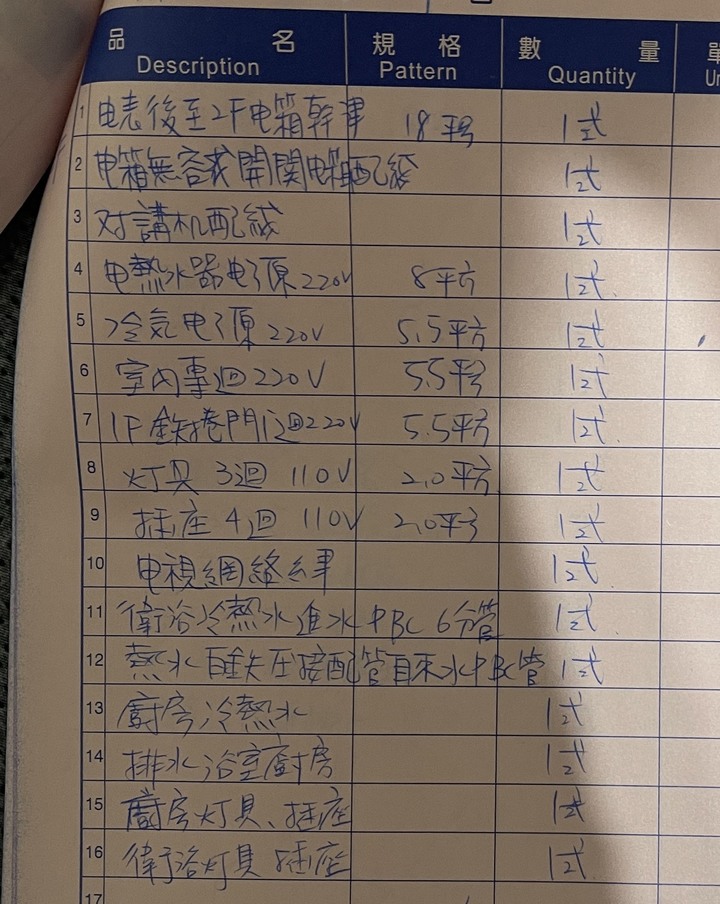 品 名 規 格 數 量 單
Description Pattern Quantity
1 电表後至2F电箱幹線 18平方 1式
2 电箱無容絲開関电箱配線 1式
3 对講机配線 1式
4 电熱水器电源220V 8平方 1式
5 冷氣电源220V 5.5平方 1式
6 室內專迴220V 5.5平方 1式
7 1F鉄捲門1迴220V 5.5平方 1式
8 灯具 3迴 110V 2.0平方 1式
9 插座 4迴 110V 2.0平方 1式
10 电視網絡線 1式
11 衛浴冷熱水進水PBC 6分管 1式
12 熱水白鉄压接配管自來水PBC管 1式
13 廚房冷熱水 1式
14 排水浴室廚房 1式
15 廚房灯具、插座 1式
16 衛浴灯具 插座 1式
17